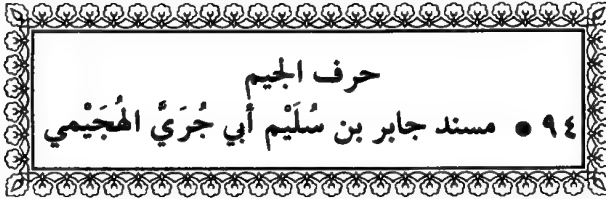 حرف الجيم
٩٤ • مسند جابر بن سُلَيْم أبي جُرَيَّ الهُجَيْمي